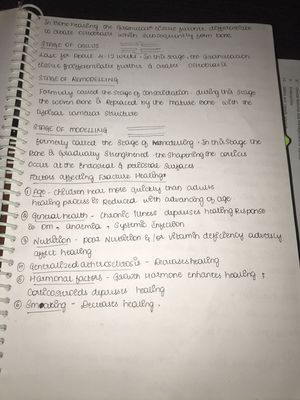 In Bone healing the granulation tissue further differentiate
to create osteoblasts which subsequently form bone
STAGE OF CALLUS
Last for about 4-12 weeks. In this stage, the granulation
tissue differentiates further & creates osteoblasts
STAGE OF REMODELLING
Formerly called the stage of consolidation. during this stage
the woven Bone is Replaced by the mature bone with the
typical lamellar structure
STAGE OF MODELLING
formerly called the stage of Remodeling. In this stage the
Bone is gradually strengthened the shapening the cortices
occur at the Endosteal & periosteal surfaces
Factors affecting fracture Healing
① Age - children heal more quickly than adults
Healing process is Reduced with advancing of age
② General health - chronic illness depresses healing Response
to DM, anaemia, systemic Infection
③ Nutrition - poor nutrition &/or vitamin deficiency adversly
affect healing
④ Generalized atherosclerosis - Decreases healing
⑤ Harmonal factors - Growth Harmone enhances healing,
Corticosteroids depresses healing
⑥ Smoking - Decreases healing.